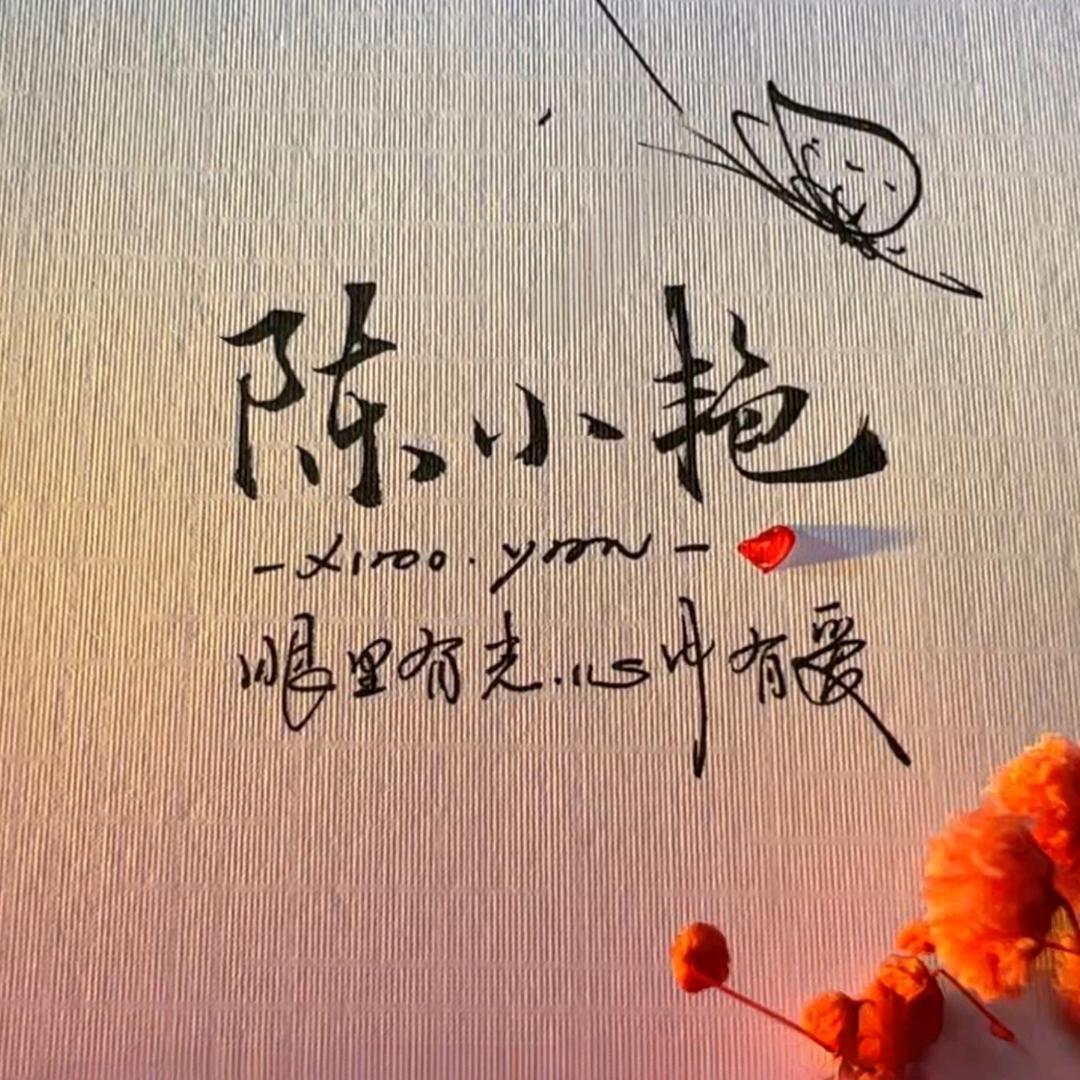 陈小艳
-xiao.yan-
眼里有光.心中有爱